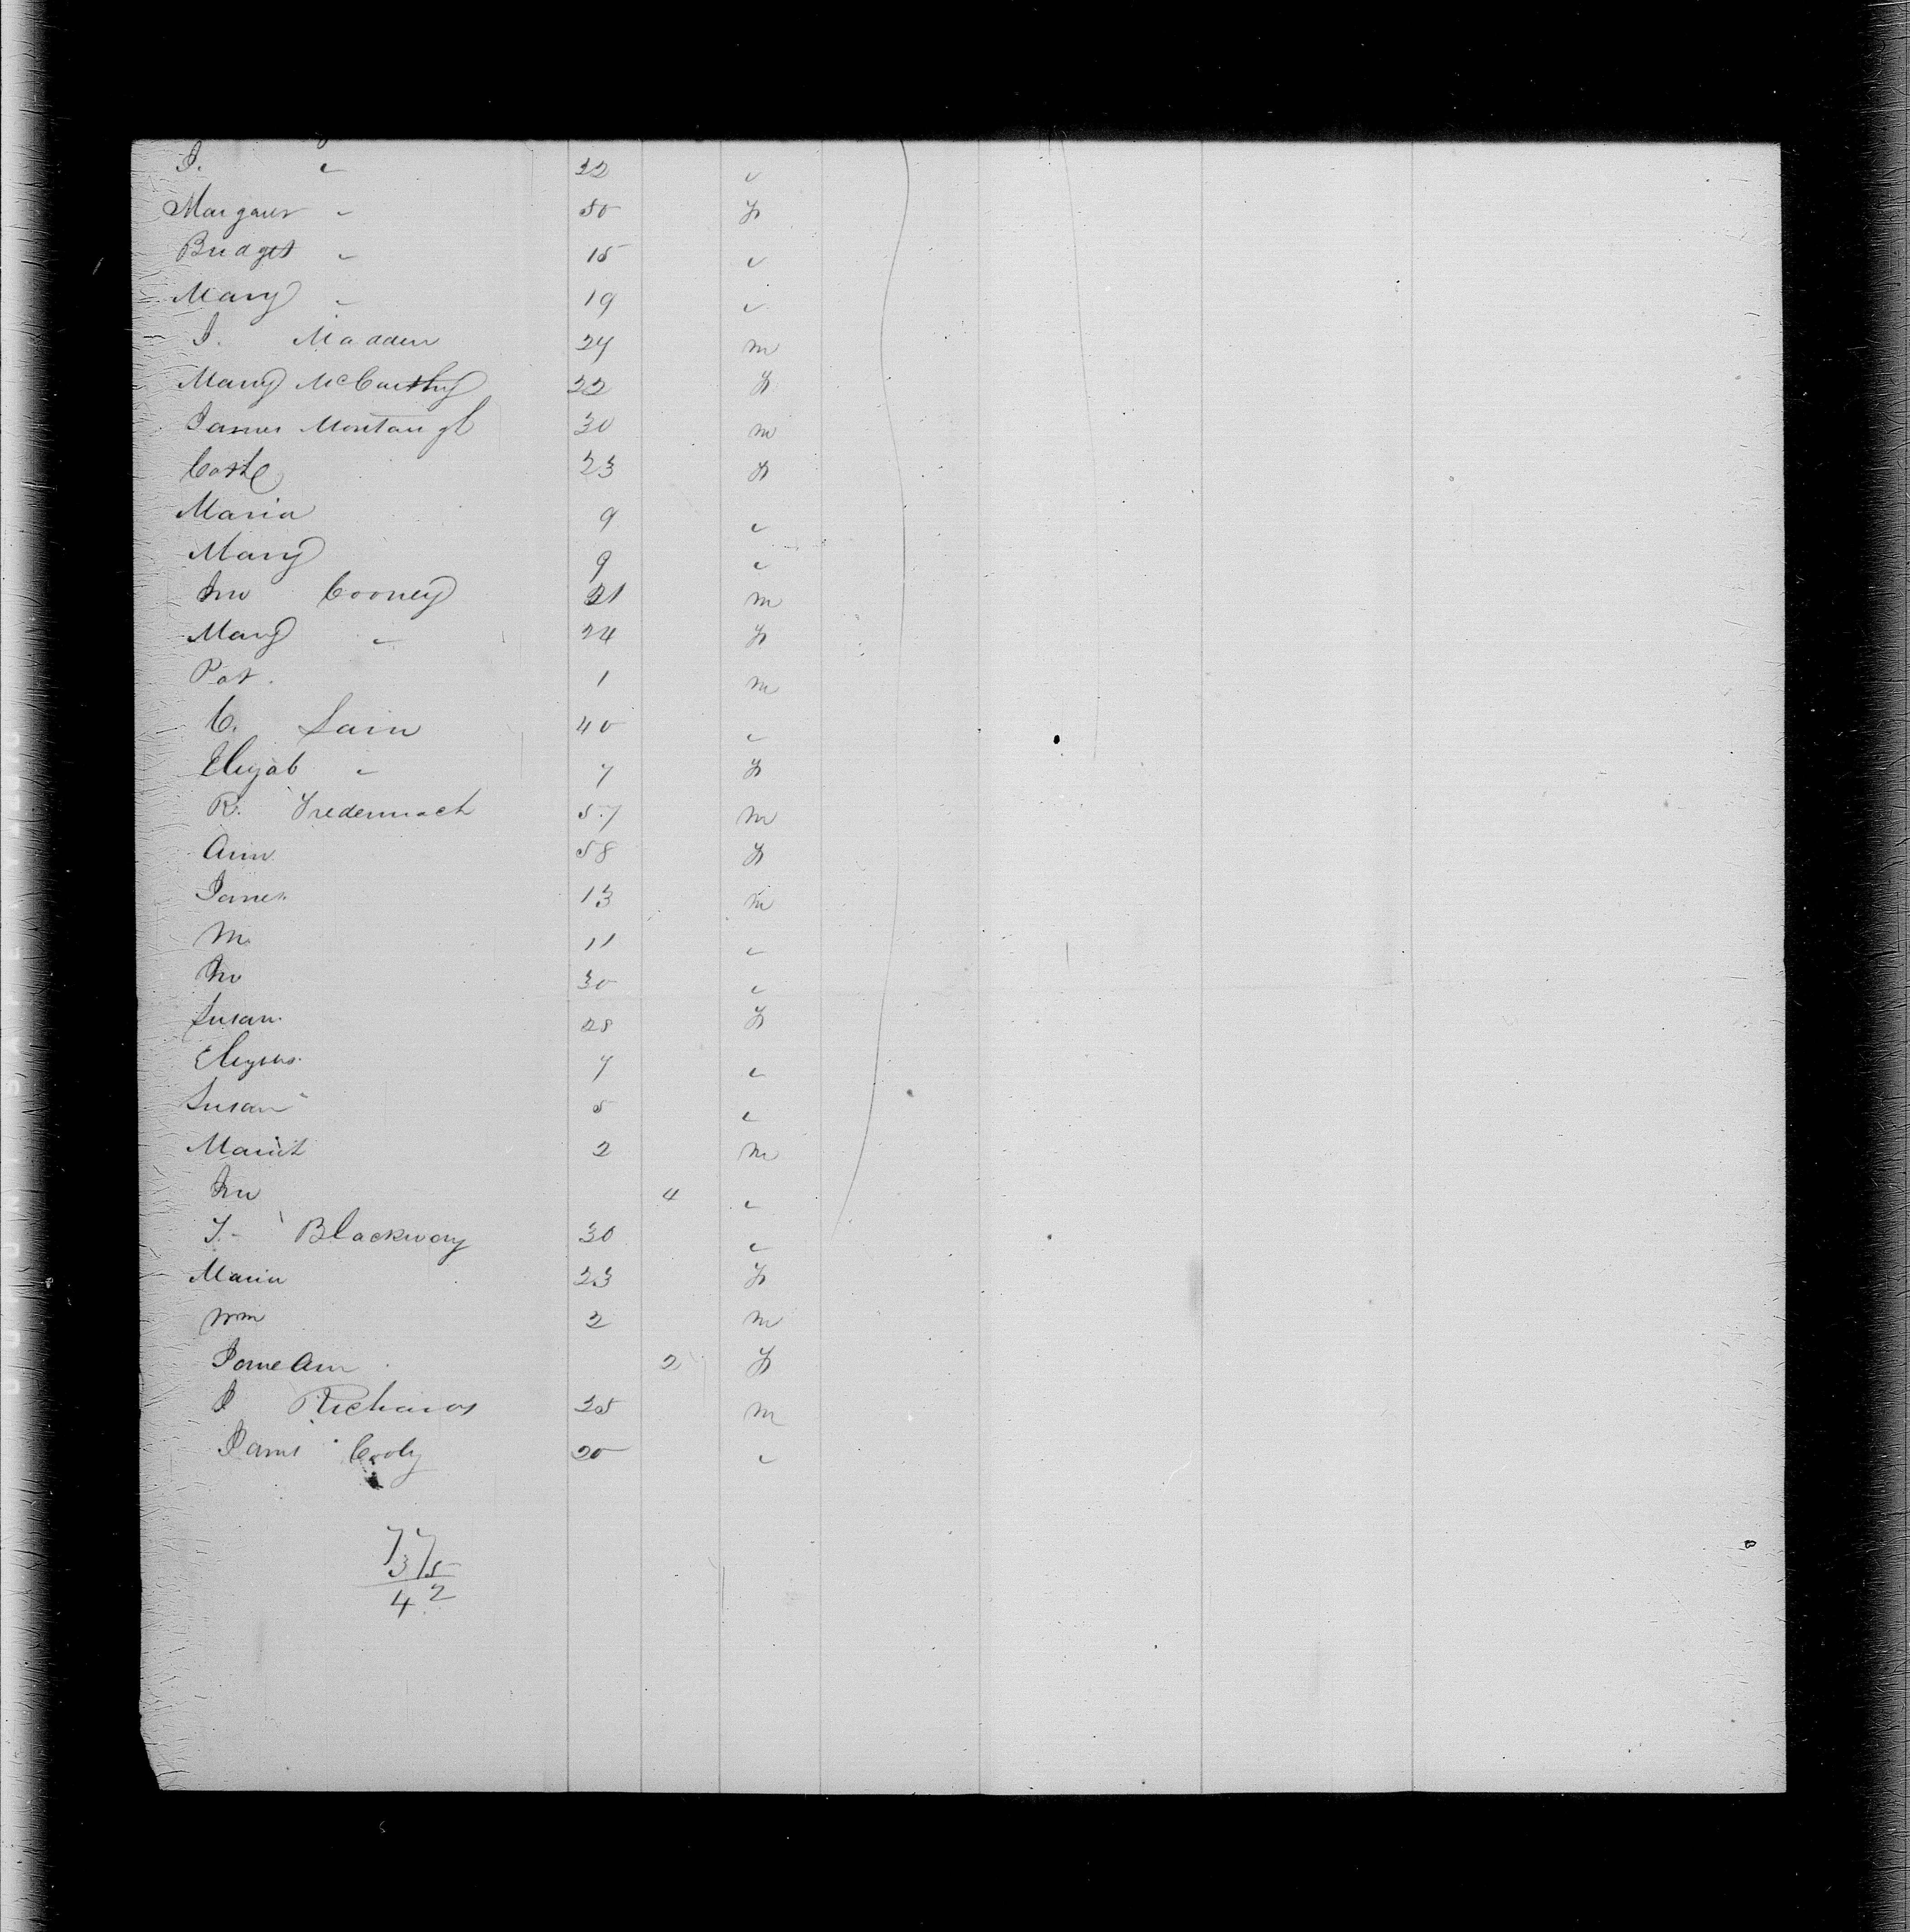 J. " 22 "
Margaret " 50 F
Bridget " 15 "
Mary " 19 "
J. Madden 24 m
Mary McCarthy 22 F
James Montaugh 30 m
Cath 23 F
Maria 9 "
Mary 9 "
Jno Cooney 21 m
Mary " 24 F
Pat. 1 m
C. Lain 40 "
Elizab " 7 F
R. 57 m
Ann 58 F
James 13 m
M. 11 "
Jno 30 "
Susan 28 F
7 "
Susan 5 "
2 m
Jno 4 "
T. Blackway 30 "
Maria 23 F
Wm 2 m
Jane Ann 2 F
J Richards 25 m
James 20 "
77
35
42